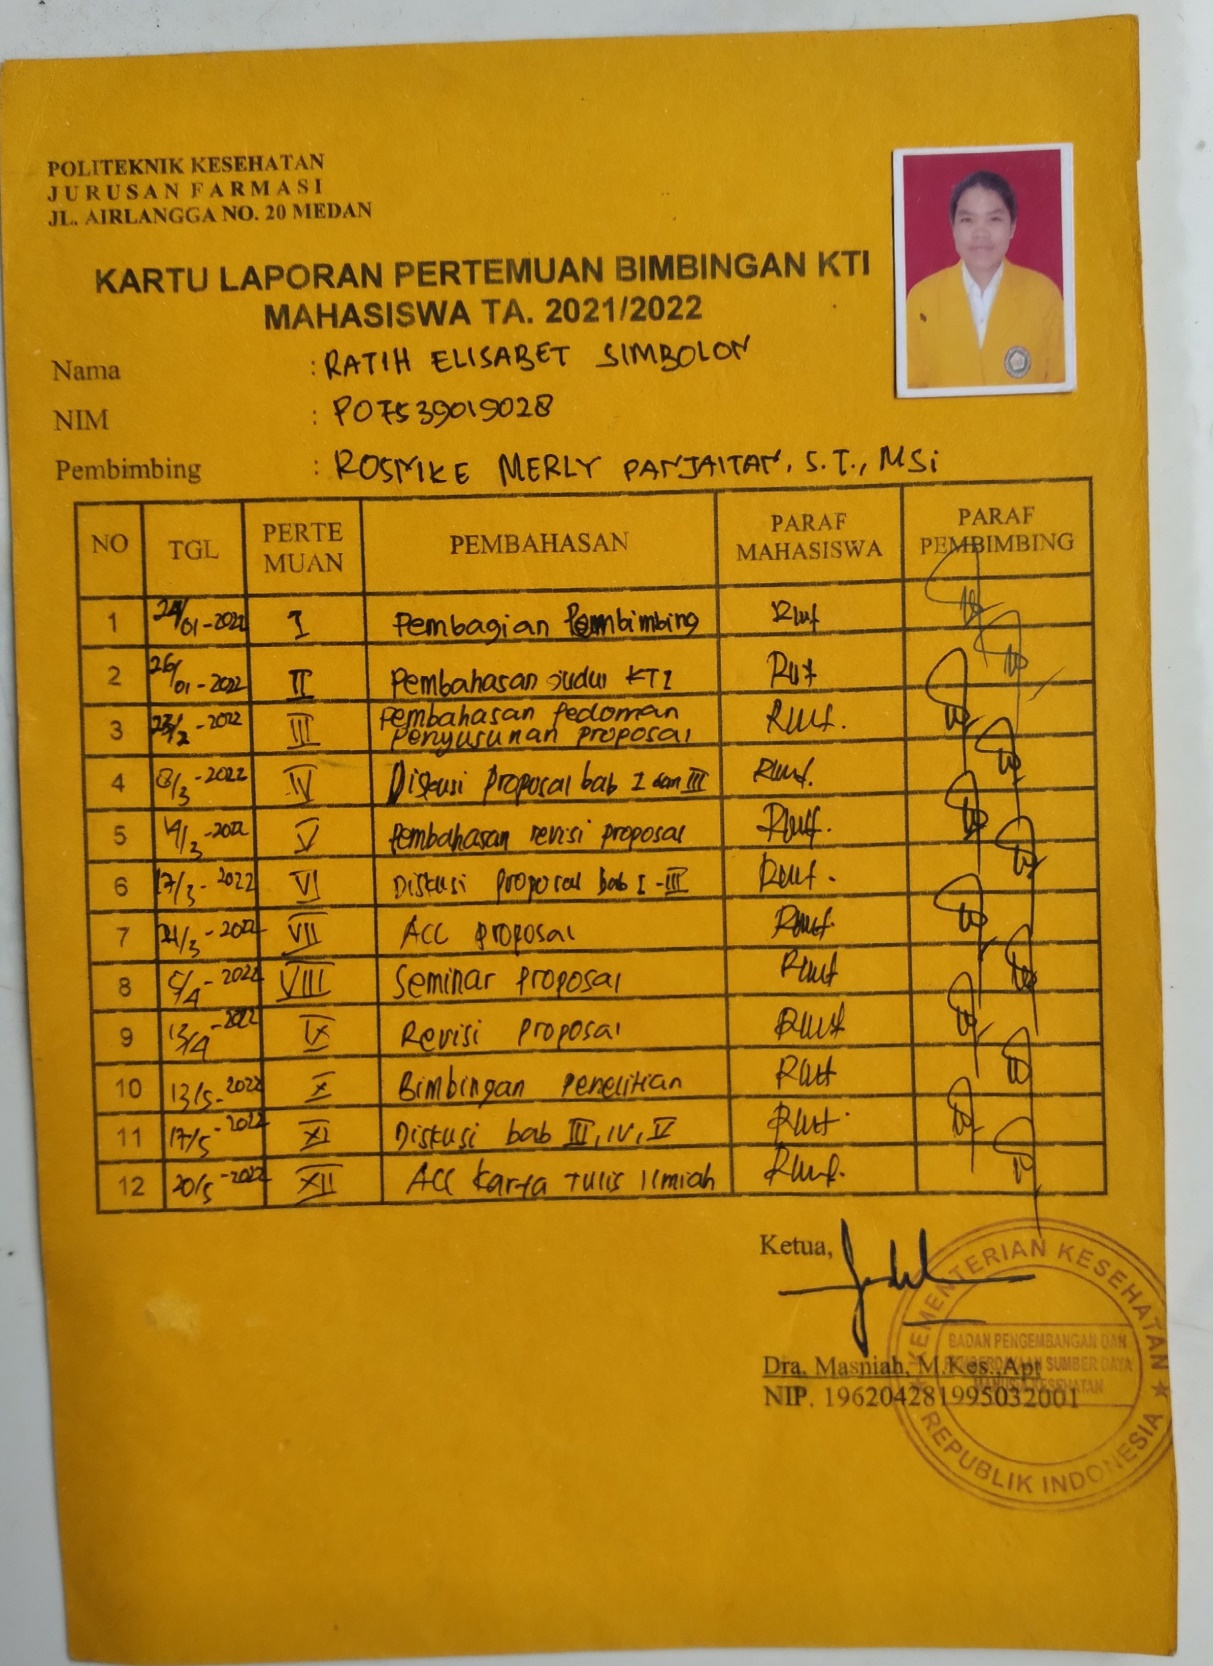 POLITEKNIK KESEHATAN
JURUSAN FARMASI
JL. AIRLANGGA NO. 20 MEDAN
KARTU LAPORAN PERTEMUAN BIMBINGAN KTI
MAHASISWA TA. 2021/2022
Nama : RATIH ELISABET SIMBOLON
NIM : P07539019028
Pembimbing : ROSNIKE MERLY PANJAITAN, S.T., MSi
NO TGL PERTE MUAN PEMBAHASAN PARAF MAHASISWA PARAF PEMBIMBING
1 24/01-2022 I Pembagian Pembimbing
2 26/01-2022 II Pembahasan Judul KTI
3 /2-2022 III Pembahasan Pedoman Penyusunan proposal
4 8/3-2022 IV Diskusi Proposal bab I dan III
5 14/3-2022 V Pembahasan revisi proposal
6 17/3-2022 VI Diskusi proposal bab I-III
7 /3-2022 VII ACC proposal
8 5/4-2022 VIII Seminar Proposal
9 13/4-2022 IX Revisi Proposal
10 13/5-2022 X Bimbingan Penelitian
11 17/5-2022 XI Diskusi bab III, IV, V
12 20/5-2022 XII ACC Karya Tulis Ilmiah
Ketua,
Dra. Masniah, M.Kes.,Apt
NIP. 196204281995032001
KEMENTERIAN KESEHATAN
BADAN PENGEMBANGAN DAN
PEMBERDAYAAN SUMBER DAYA
MANUSIA KESEHATAN
REPUBLIK INDONESIA